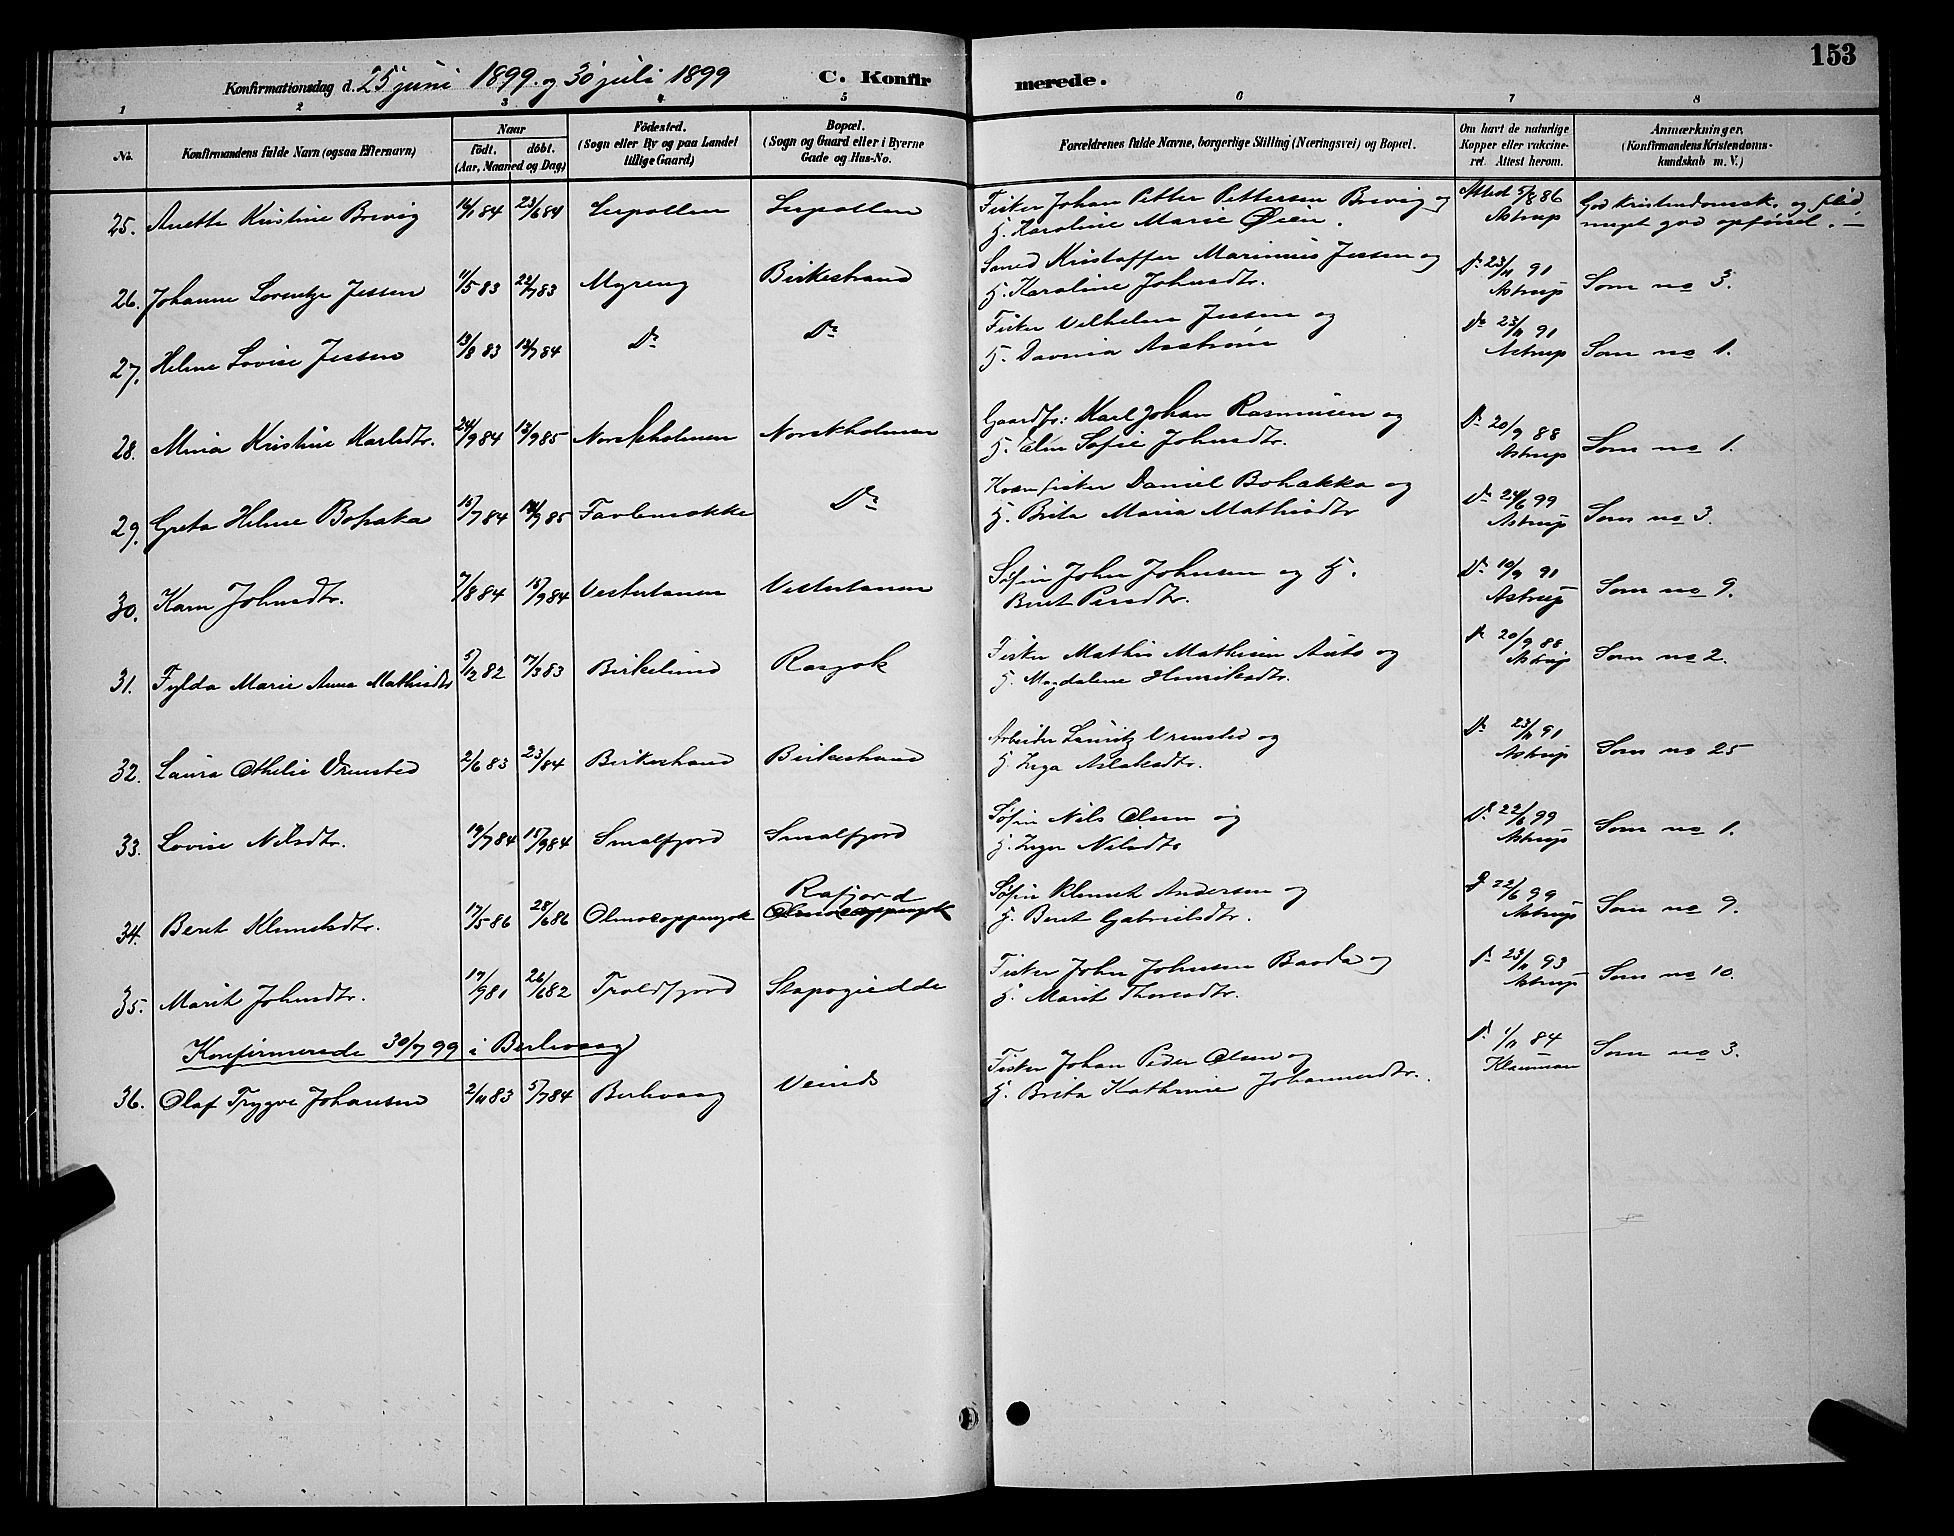 153
Konfirmationsdag d. 25 juni 1899. og 30 juli 1899 C. Konfirmerede.
1 2 3 4 5 6 7 8
No. Konfirmandens fulde Navn (ogsaa Efternavn) Naar födt. döbt. (Aar, Maaned og Dag) Födested. (Sogn eller By og paa Landet tillige Gaard) Bopæl. (Sogn og Gaard eller i Byerne Gade og Hus-No. Forældrenes fulde Navne, borgerlige Stilling (Næringsvei) og Bopæl. Om havt de naturlige Kopper eller vakcineret. Attest herom. Anmærkninger, (Konfirmandens Kristendomskundskab m. V.)
25. Anette Kristine Brevig 16/1 84 23/6 84 Leerpollen Leerpollen Fisker Johan Petter Pettersen Brevig og H. Karoline Marie Øien. Attest 5/8 86 Astrup God kristendomsk. og flid meget god opførsel. —
26. Johanne Lorentze Jessen 11/5 83 22/7 83 Myreng Birkestrand Kristoffer Marinius Jessen og H. Karoline Johnsdtr. Do 23/11 91 Astrup Som no 3.
27. Helene Lovise Jessen 13/8 83 13/7 84 Do Do Fisker Vilhelm Jessen og H. Davinia Do 23/11 91 Astrup Som no 1.
28. Mina Kristine Karlsdtr. 24/9 84 13/9 85 Norskholmen Norskholmen Gaardbr: Karl Johan Rasmusen og H. Elen Sofie Johnsdtr. Do 20/9 88 Astrup Som no 1.
29. Greta Helene Bohaka 15/7 84 85 Do Kvæn fisker Daniel Bohakka og H. Brita Maria Mathisdtr Do 24/6 99 Astrup Som no 3.
30. Karn Johnsdtr. 7/8 84 15/9 84 Vestertanen Vestertanen Søfin John Johnsen og H. Beret Persdtr. Do 10/9 91 Astrup Som no 9.
31. Fylda Marie Anna Mathisdtr 5/12 82 7/3 83 Birkelund Rasjok Fisker Mathis Mathisen og H. Magdalene Henriksdtr. Do 20/9 88 Astrup Som no 2.
32. Laura Othelie Vrensted 2/6 83 23/ 84 Birkestrand Birkestrand Arbeider Lauritz Vrensted og H. Inga Aslaksdtr. Do 23/11 91 Astrup Som no 25
33. Lovise Nilsdtr. 19/7 84 15/9 84 Smalfjord Smalfjord Søfin Nils Olsen og H. Inger Nilsdtr Do 22/6 99 Astrup Som no 1.
34. Beret Klemetsdtr. 17/5 86 28/6 86 Rafjord Søfin Klemet Andersen og H. Beret Gabrielsdtr. Do 22/6 99 Astrup Som no 9.
35. Marit Johnsdtr. 19/9 81 26/6 82 Troldfjord Stapogiedde Fisker John Johnsen Baoda og H. Marit Thomasdtr. Do 23/11 93 Astrup Som no 10.
Konfirmerede 30/7 99 i Berlevaag
36. Olaf Trygve Johansen 2/11 83 5/7 84 Berlevaag Veines Fisker Johan Peder Olsen og H. Brita Kathrine Johannesdtr. Do 1/11 84 Klaumann Som no 3.